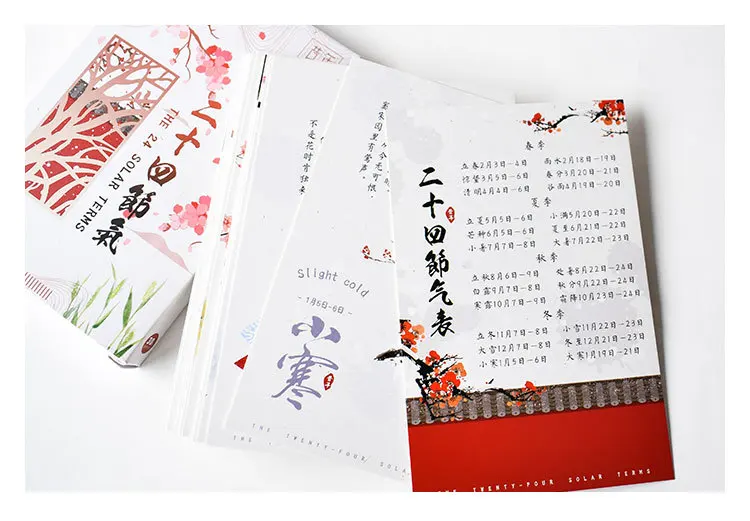 二十四節氣
THE 24 SOLAR TERMS
不是花时肯独来
园里有莺声。
slight cold
- 1月5日-6日 -
小寒
THE TWENTY-FOUR SOLAR
THE
二十四節气表
春季
立春2月3日-4日 雨水2月18日-19日
惊蛰3月5日-6日 春分3月20日-21日
清明4月4日-6日 谷雨4月19日-20日
夏季
立夏5月5日-6日 小满5月20日-22日
芒种6月5日-6日 夏至6月21日-22日
小暑7月7日-8日 大暑7月22日-23日
秋季
立秋8月6日-9日 处暑8月22日-24日
白露9月7日-8日 秋分9月22日-24日
寒露10月7日-9日 霜降10月23日-24日
冬季
立冬11月7日-8日 小雪11月22日-23日
大雪12月7日-8日 冬至12月21日-23日
小寒1月5日-6日 大寒1月19日-21日
THE TWENTY-FOUR SOLAR TERMS